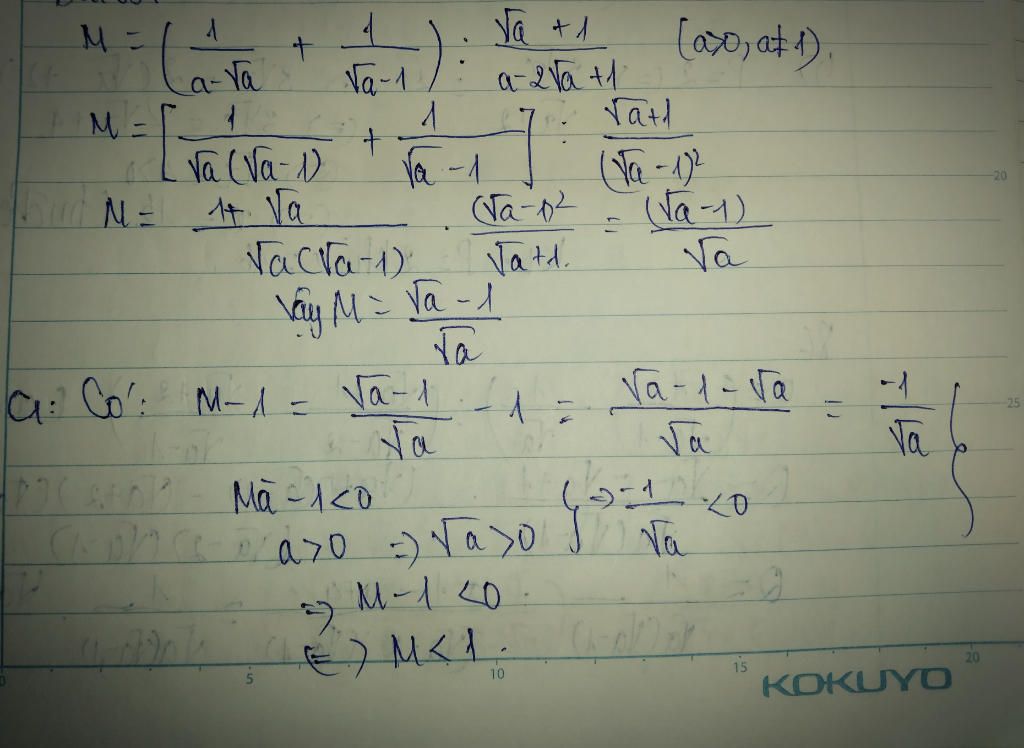 M = ( 1/(a-√a) + 1/(√a-1) ) : (√a +1)/(a-2√a+1) (a>0, a≠1).
M = [ 1/(√a(√a-1)) + 1/(√a-1) ] : (√a+1)/(√a-1)²
M = (1+√a)/(√a(√a-1)) . (√a-1)²/(√a+1). = (√a-1)/√a
Vậy M = (√a-1)/√a
Có: M-1 = (√a-1)/√a - 1 = (√a-1-√a)/√a = -1/√a }
Mà -1<0
a>0 => √a>0 } => -1/√a <0
=> M-1 <0
(=) M<1.
5 10 15 20
20
25
KOKUYO